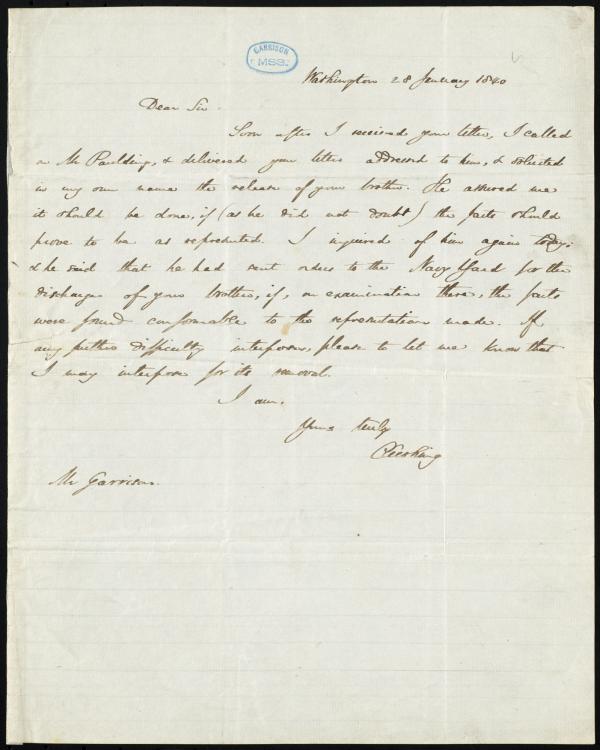 GARRISON
MSS.
Washington 28 January 1840
Dear Sir.
Soon after I received your letter, I called
on Mr Paulding, & delivered your letter addressed to him, & solicited
in my own name the release of your brother. He assured me
it should be done, if (as he did not doubt) the facts should
prove to be as represented. I inquired of him again today:
& he said that he had sent orders to the Navy Yard for the
discharge of your brother, if, on examination there, the facts
were found conformable to the representations made. If
any further difficulty interposes, please to let me know that
I may interpose for its removal.
I am.
Yours truly
C Cushing
Mr Garrison.